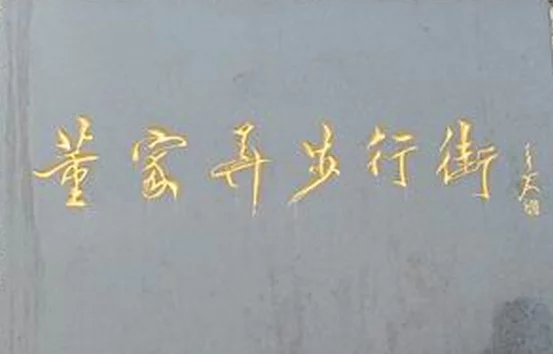 董家弄步行街